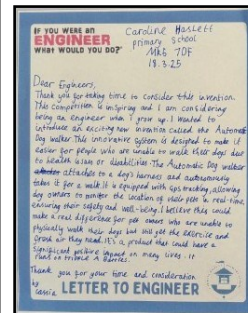 IF YOU WERE AN
ENGINEER
WHAT WOULD YOU DO?
Caroline Haslett
primary School
MK5 7DF
18.3.25
Dear Engineers,
Thank you for taking time to consider this invention.
This competition is inspiring and I am considering
being an engineer when I grow up. I wanted to
introduce an exciting new invention called the Automatic
Dog walker. This innovative system is designed to make it
easier for people who are unable to walk their dogs due
to health issues or disabilities. The Automatic Dog walker
attaches to a dog's harness and autonomously
takes it for a walk. It is equipped with GPS tracking, allowing
dog owners to monitor the location of their pets in real-time,
ensuring their safety and well-being. I believe this could
make a real difference for pet owners who are unable to
physically walk their dogs but still get the exercise and
fresh air they need. It's a product that could have a
significant positive impact on many lives. It
runs on
Thank you for your time and consideration
by
LETTER TO ENGINEER